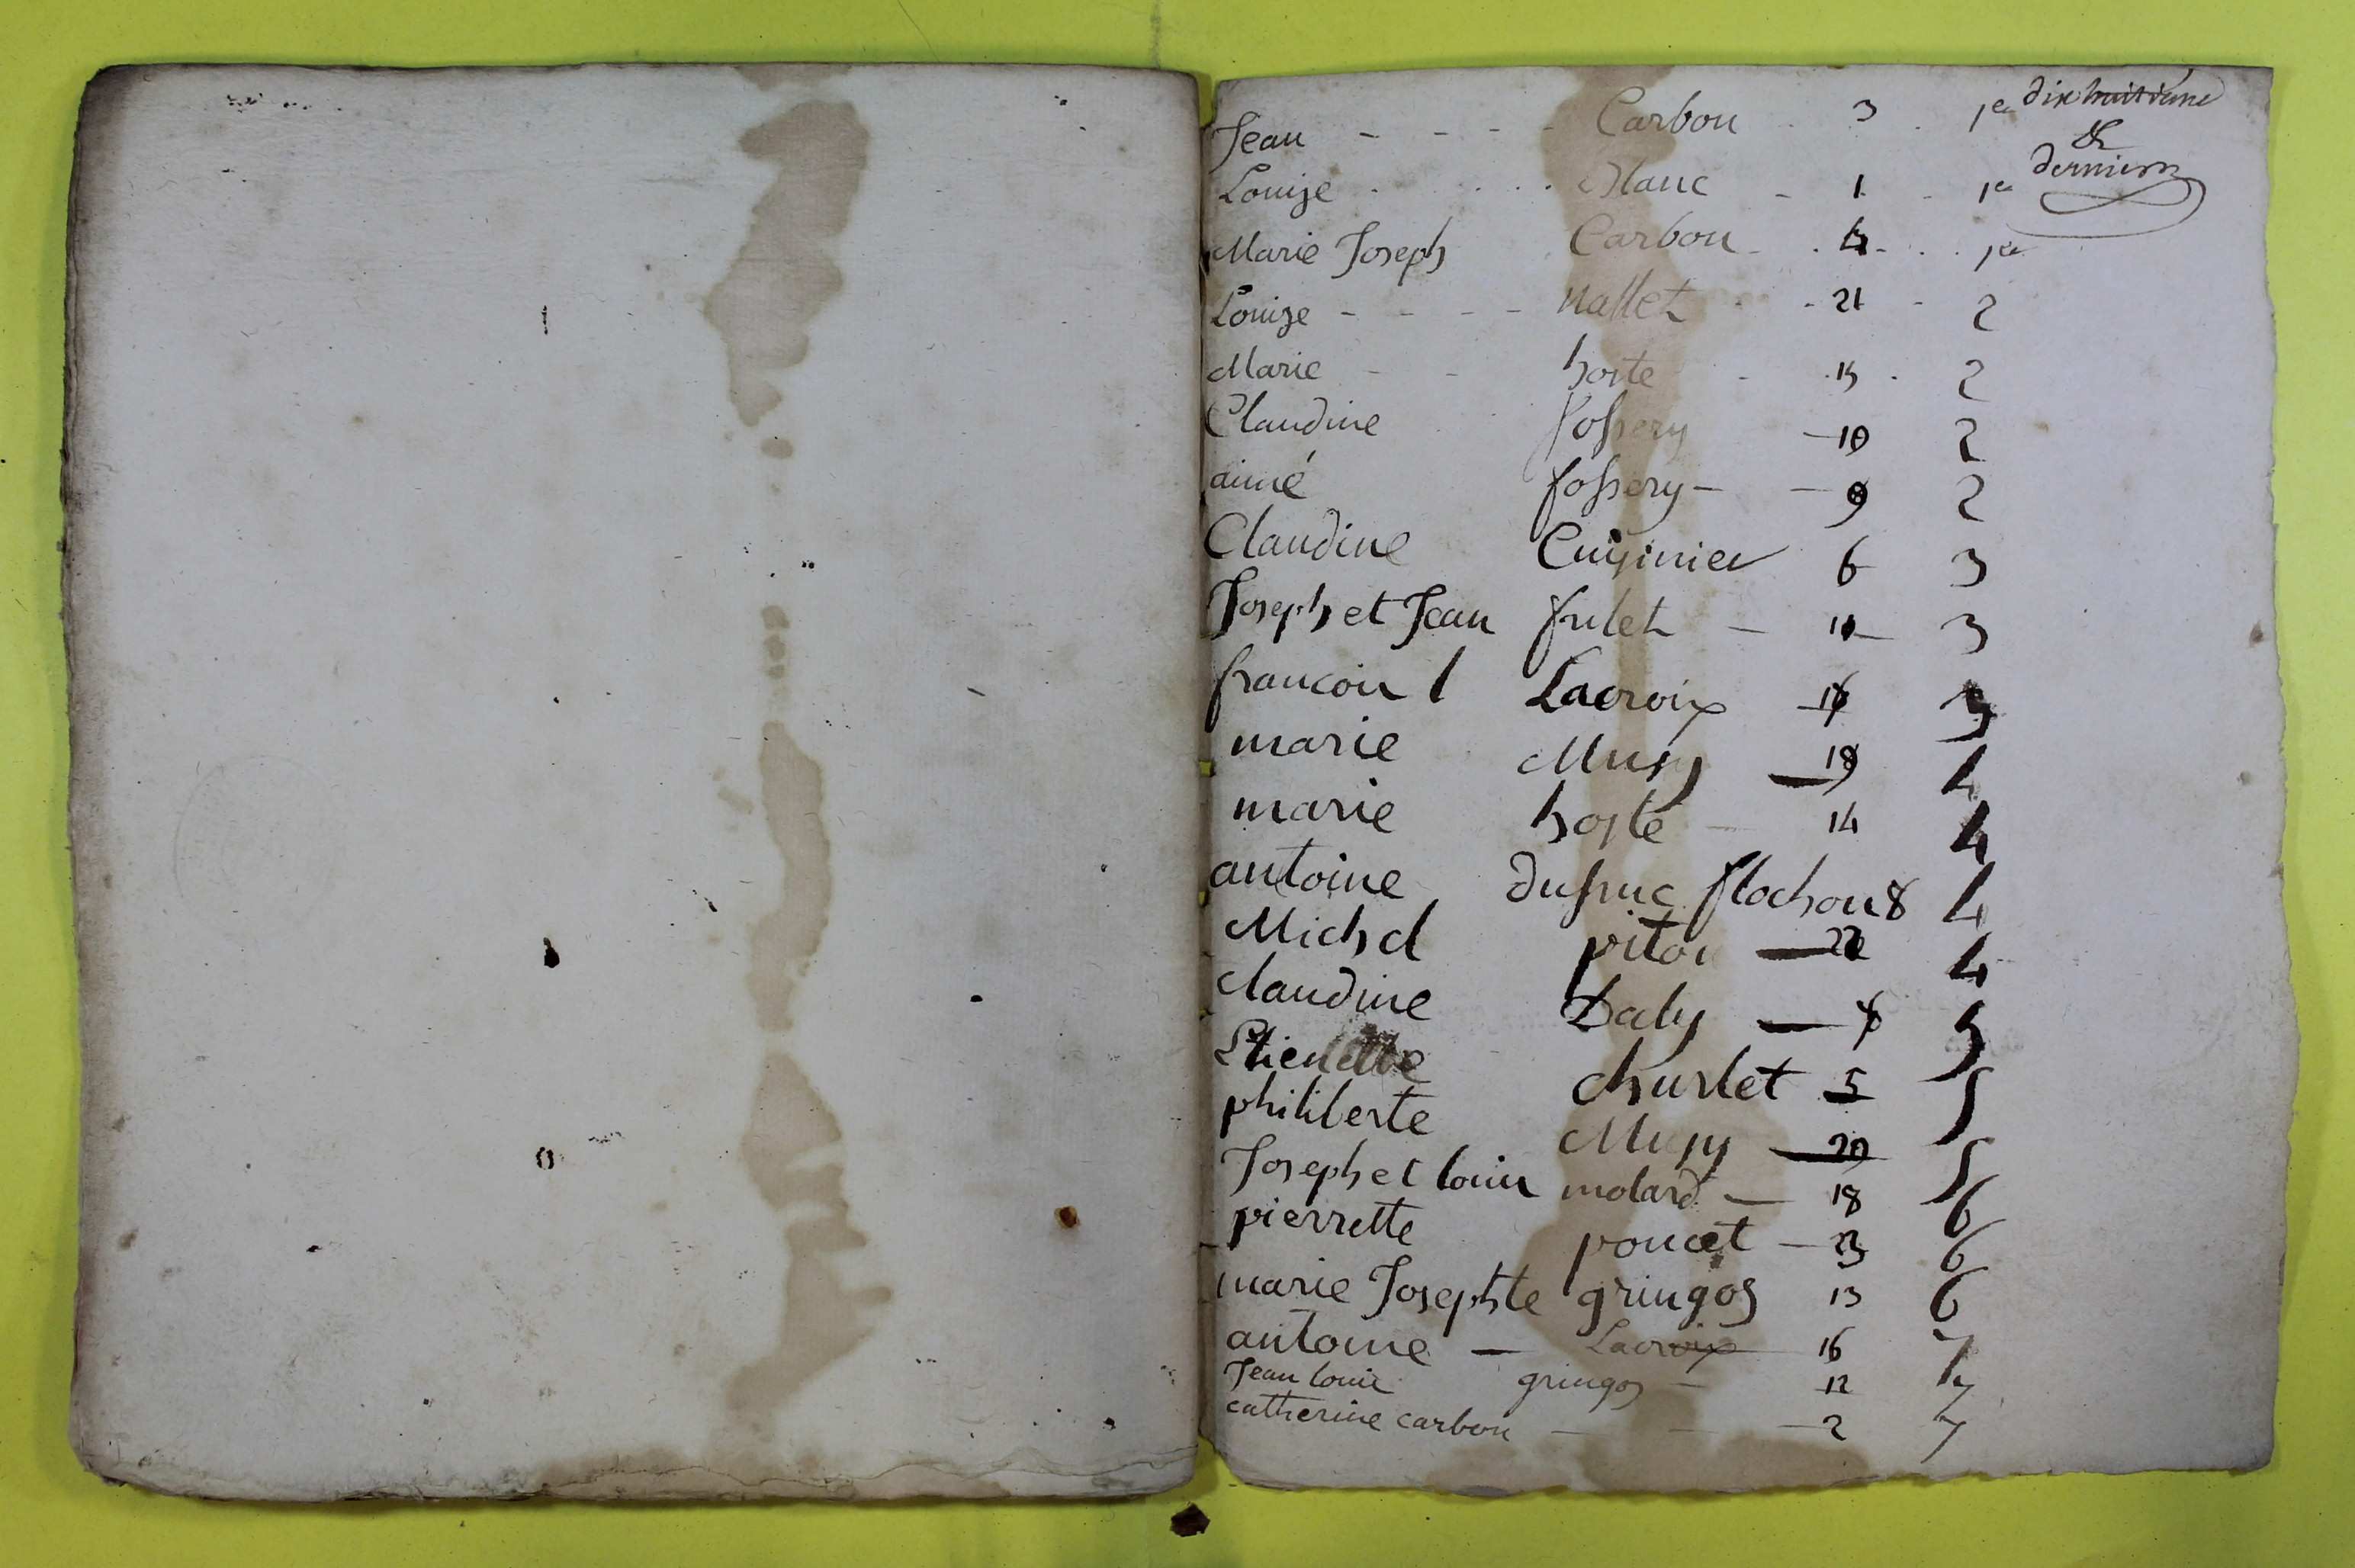 dix huitième
&
dernier
Jean - - - - Carbon 3 1er
Louize . . . . Blanc - 1 - 1er
Marie Joseph Carbon - 4 - 1er
Louize - - - - Mallet - 21 - 2
Marie - - hoste - 15 - 2
Claudine fossery - 10 2
aimé fossery - - 9 2
Claudine Cuisinier 6 3
Joseph et Jean frilet - 11 3
francois l Lacroix - 3
marie Musy - 19 4
marie hoste - 14 4
antoine dufruc flochou 8 4
Michel piton - 22 4
claudine Daly - 5
Etienette churlet 5 5
philiberte Musy - 20 5
Joseph et louis molard - 18 6
pierrette poncet - 23 6
marie Josephte gringoz 13 6
antoine - Lacroix 16 7
Jean louis gringoz - 12 7
catherine carbon - - - 2 7